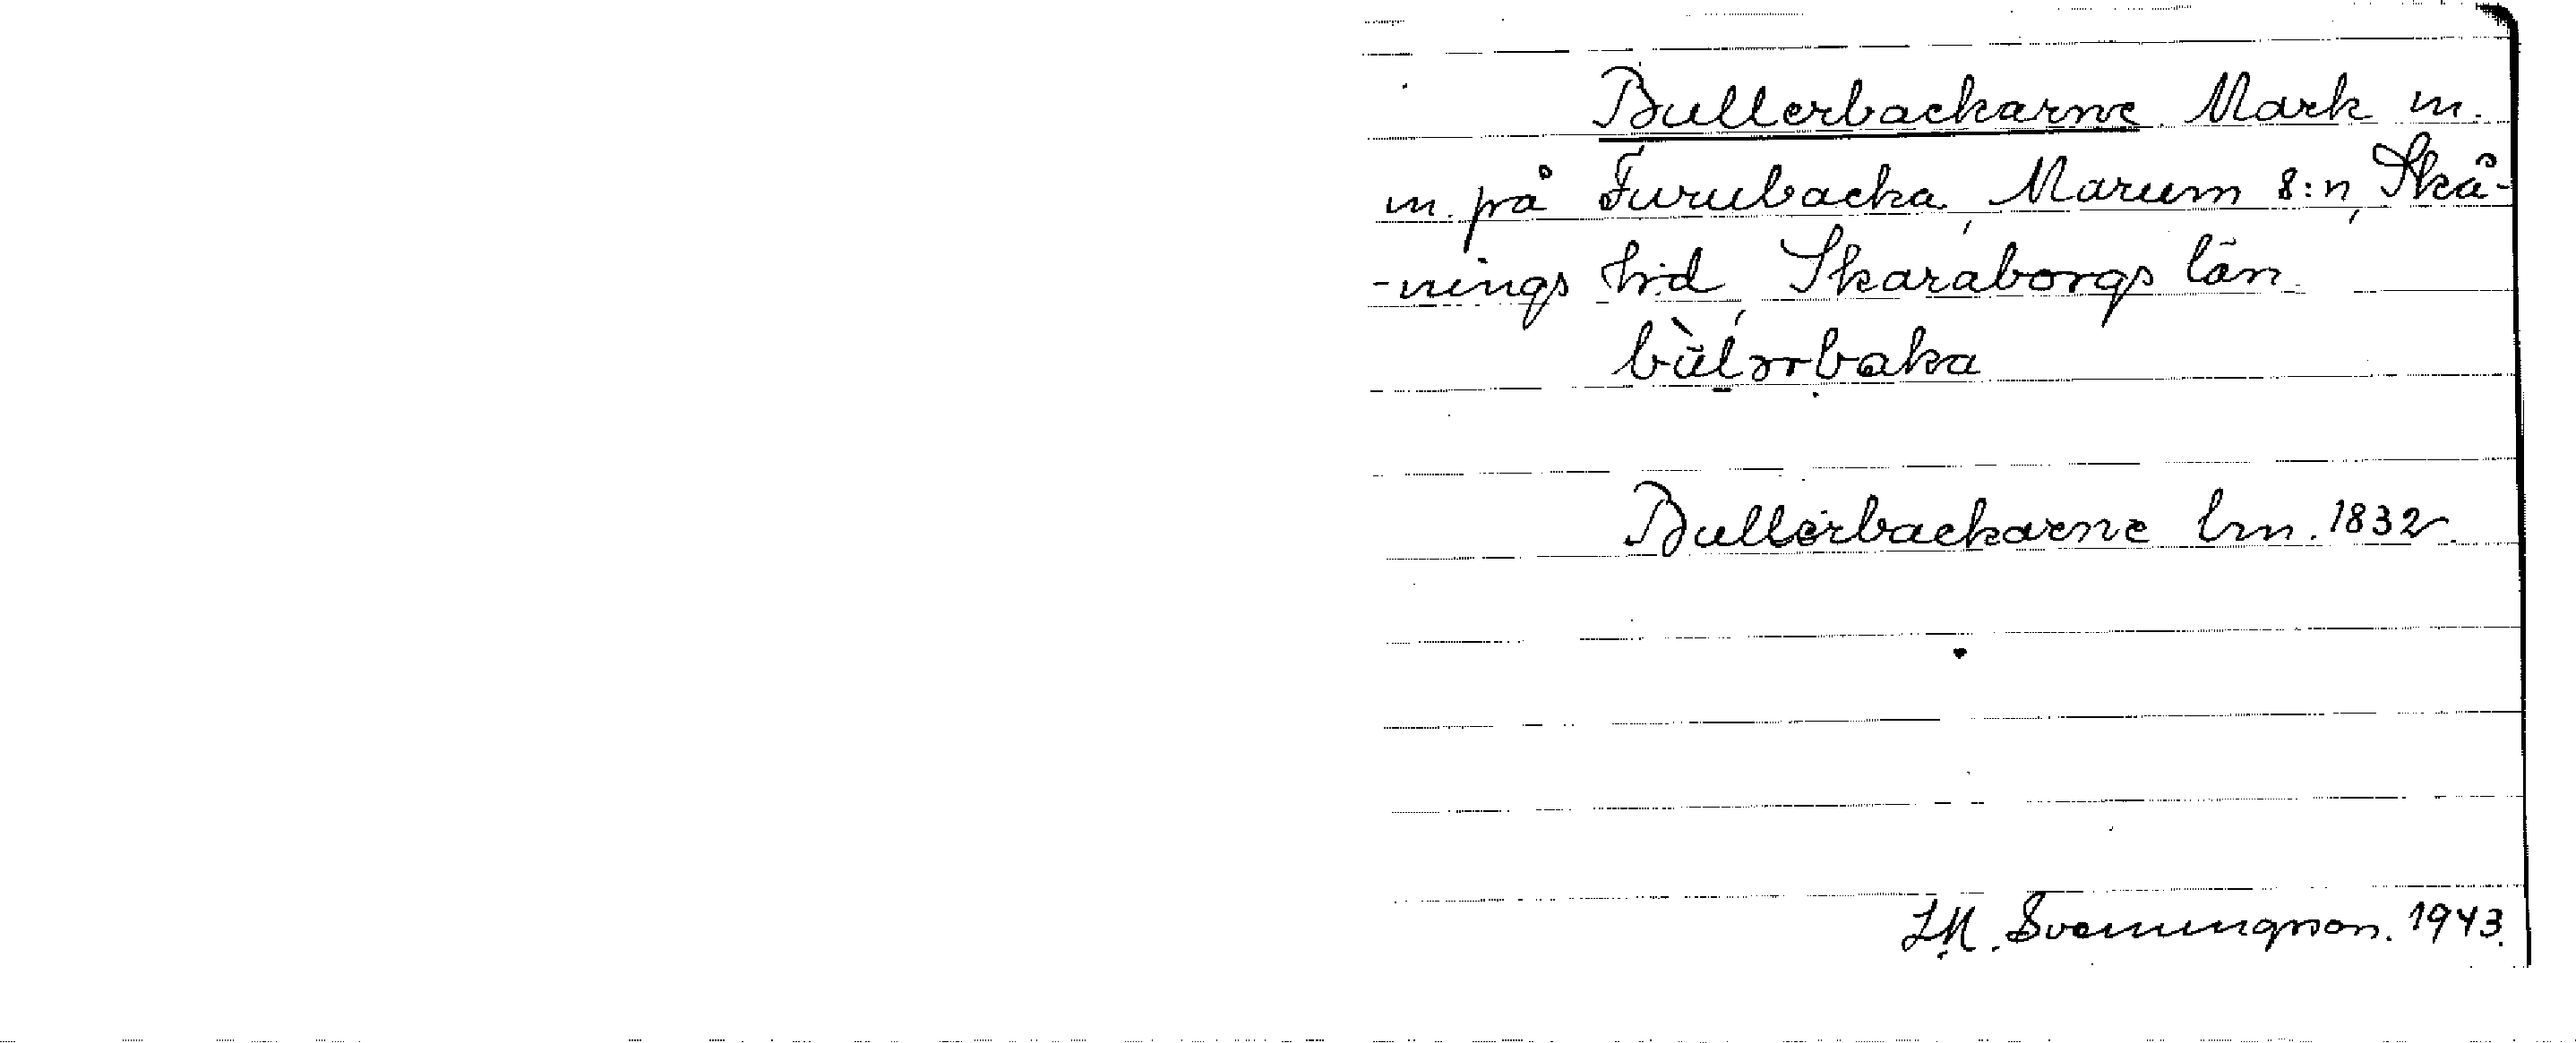 Bullerbackarne. Mark m.
m. på Furubacka, Marum s:n, Skå-
-nings hd, Skaraborgs län.
Bullerbackarne lm. 1832.
Svenningson. 1943.